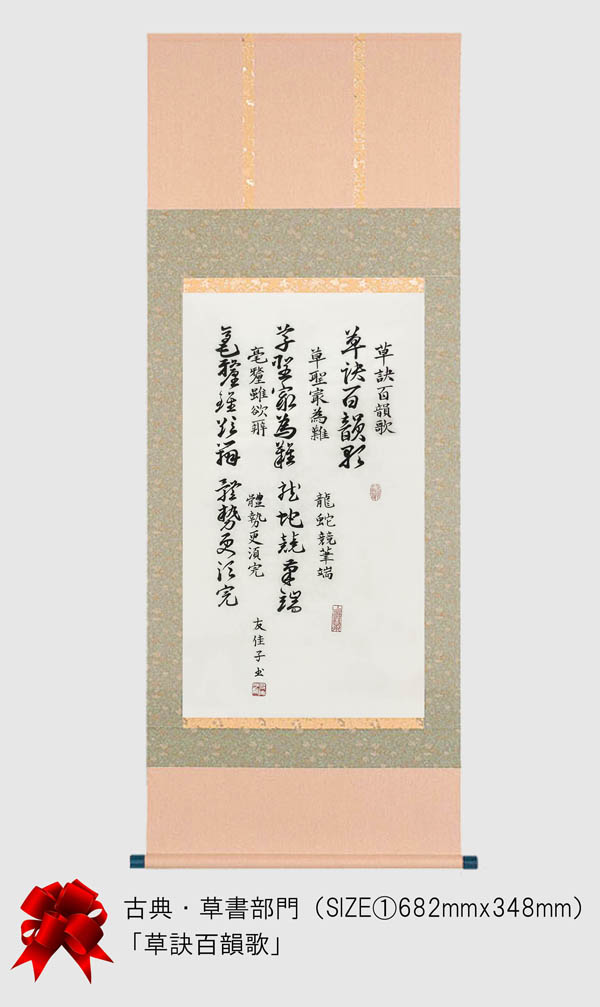 草訣百韻歌
草訣百韻歌
草聖最為難 龍蛇競筆端
草聖最為難 龍蛇競筆端
毫釐雖欲辨 體勢更須完
毫釐雖欲辨 體勢更須完
友佳子书
古典・草書部門（SIZE①682mmx348mm）
「草訣百韻歌」